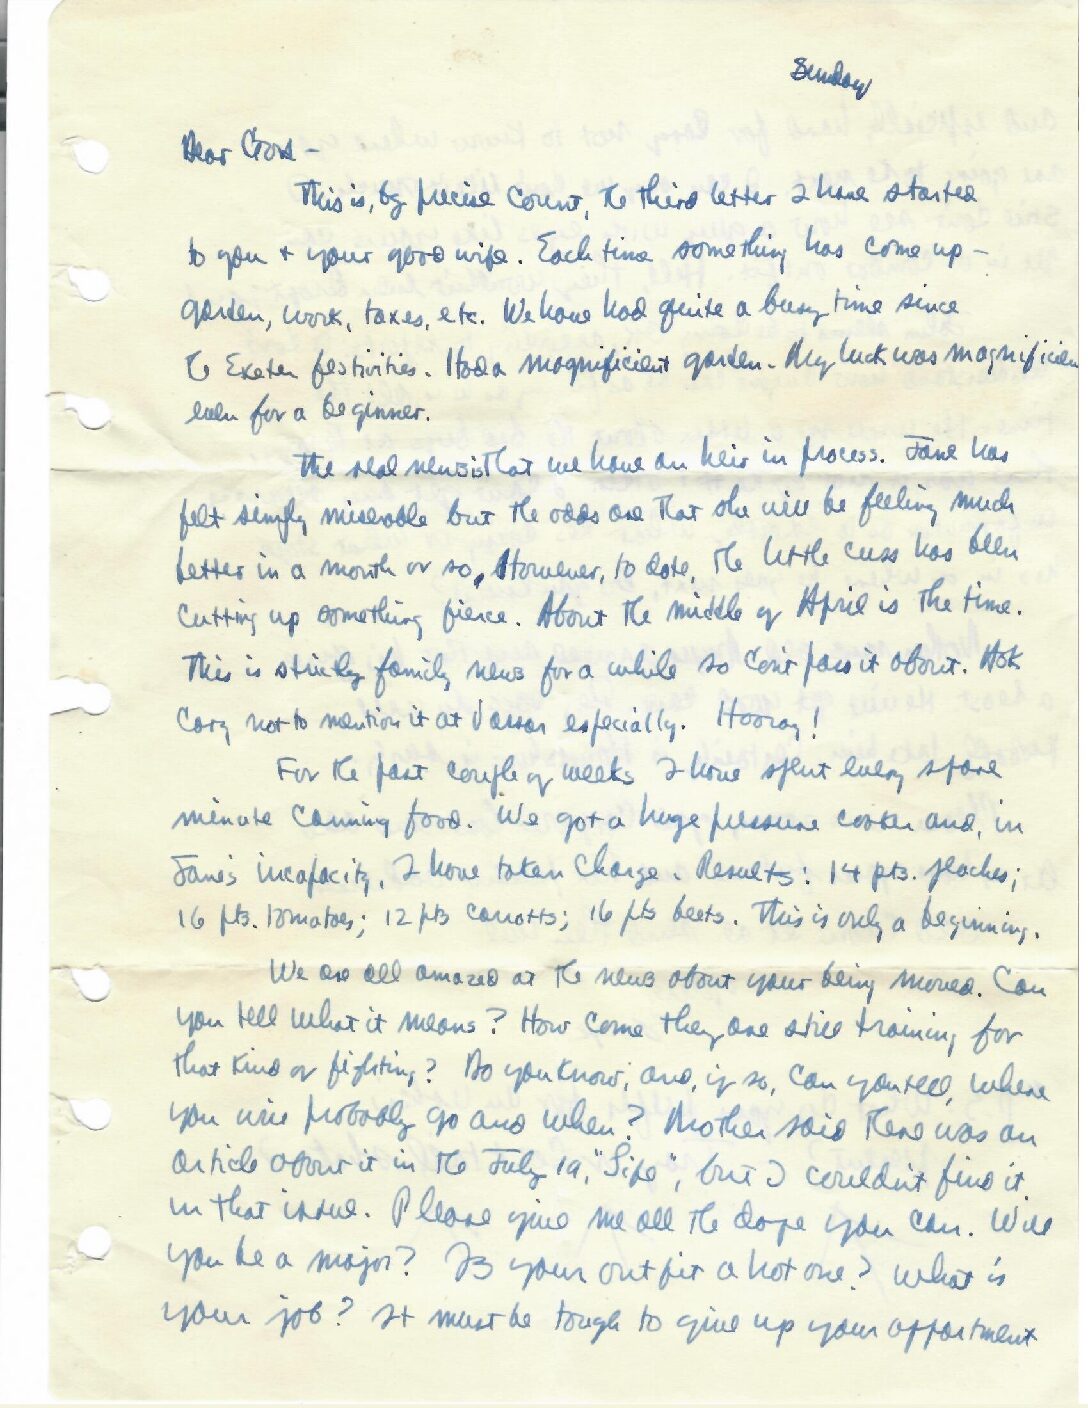 Sunday
Dear Gord -
This is, by precise count, the third letter I have started
to you + your good wife. Each time something has come up -
garden, work, taxes, etc. We have had quite a busy time since
the Exeter festivities. Had a magnificient garden. My luck was magnificien
even for a beginner.
The real news is that we have an heir in process. Jane has
felt simply miserable but the odds are that she will be feeling much
better in a month or so. However, to date, the little cuss has been
cutting up something fierce. About the middle of April is the time.
This is strictly family news for a while so don't pass it about. Ask
Cary not to mention it at Vassar especially. Hooray!
For the past couple of weeks I have spent every spare
minute canning food. We got a huge pressure cooker and, in
Jane's incapacity, I have taken charge. Results: 14 pts. peaches;
16 pts. tomatoes; 12 pts carrotts; 16 pts beets. This is only a beginning.
We are all amazed at the news about your being moved. Can
you tell what it means? How come they are still training for
that kind of fighting? Do you know, and, if so, can you tell, where
you will probably go and when? Mother said there was an
article about it in the July 19, "Life", but I couldn't find it
in that issue. Please give me all the dope you can. Will
you be a major? Is your outfit a hot one? What is
your job? It must be tough to give up your appartment